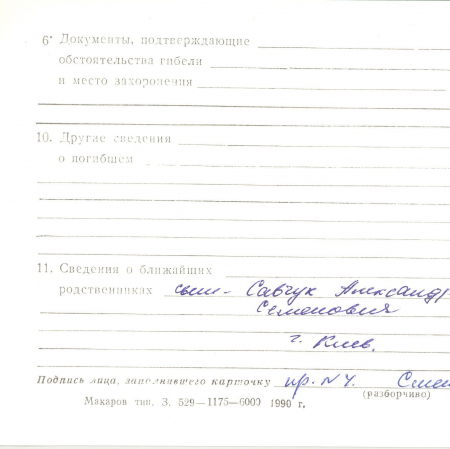 6. Документы, подтверждающие
обстоятельства гибели
и место захоронения
10. Другие сведения
о погибшем
11. Сведения о ближайших
родственниках сын - Савчук Александр
Семенович
г. Киев.
Подпись лица, заполнившего карточку пр. N4.
(разборчиво)
Макаров тип. З. 529—1175—6000 1990 г.